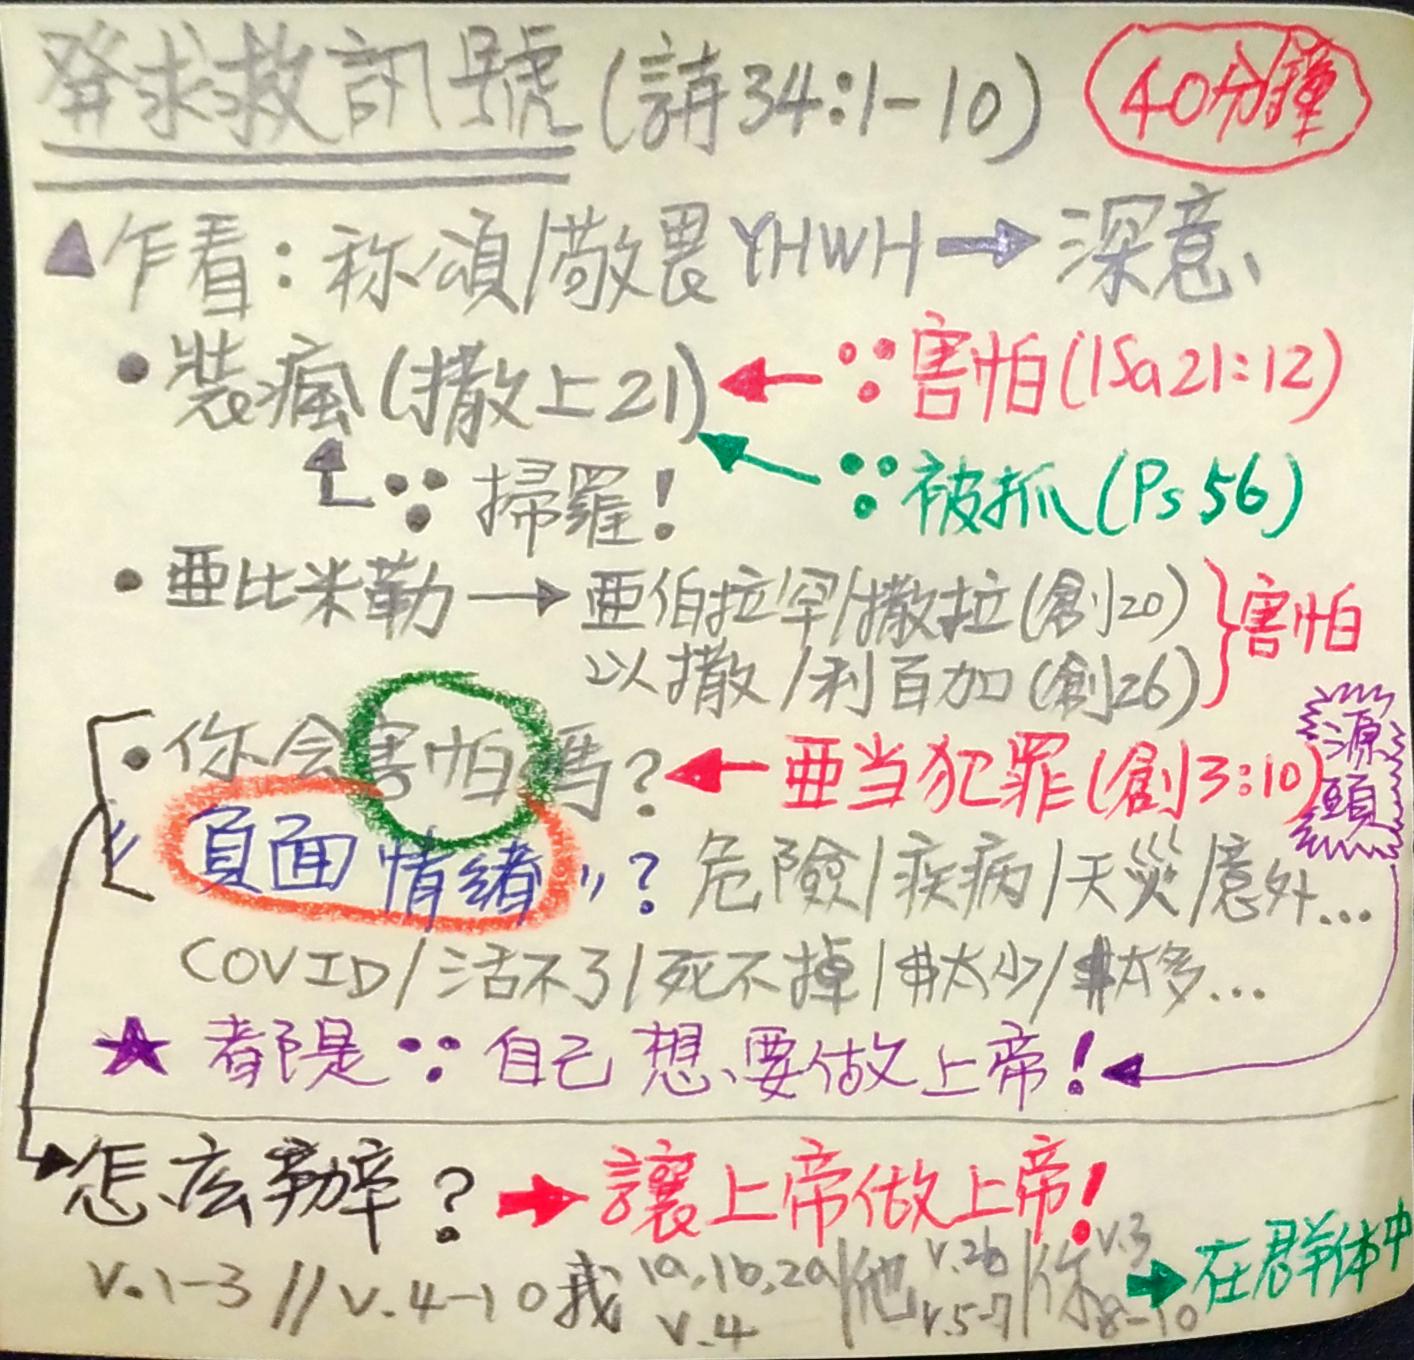 發求救訊號 (詩34:1-10) 40分鐘
▲乍看:称頌/敬畏YHWH → 深意
•装瘋(撒上21) ← ∵害怕(1Sa21:12)
∵掃羅! ∵被抓(Ps 56)
•亜比米勒 → 亜伯拉罕/撒拉(創20) 害怕
以撒/利百加(創26)
•你会害怕嗎? ← 亜当犯罪(創3:10) 源頭
"負面情緒"? 危險/疾病/天災/意外...
COVID/活不了/死不掉/太少/太多...
★都是∵自己想要做上帝!
怎庅辦? → 讓上帝做上帝!
v.1-3 // v.4-10 我 1a,1b,2a v.4 /他 v.2b v.5-7 /你 v.3 8-10 → 在群体中